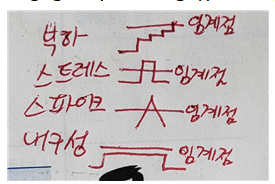 부하 임계점
스트레스 임계점
스파이크 임계점
내구성 임계점